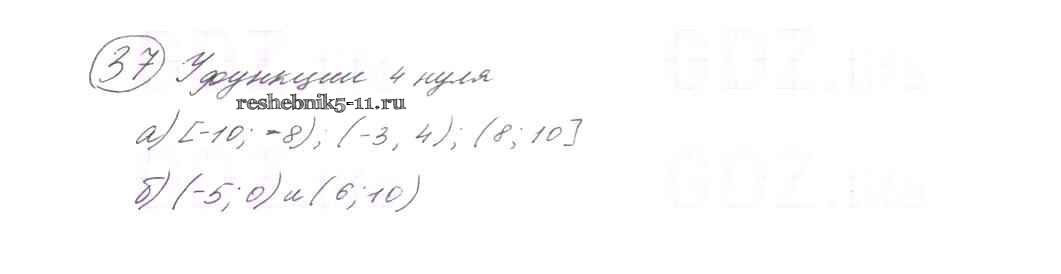 37 У функции 4 нуля
reshebnik5-11.ru
а) [-10; -8); (-3, 4); (8; 10]
б) (-5; 0) и (6; 10)